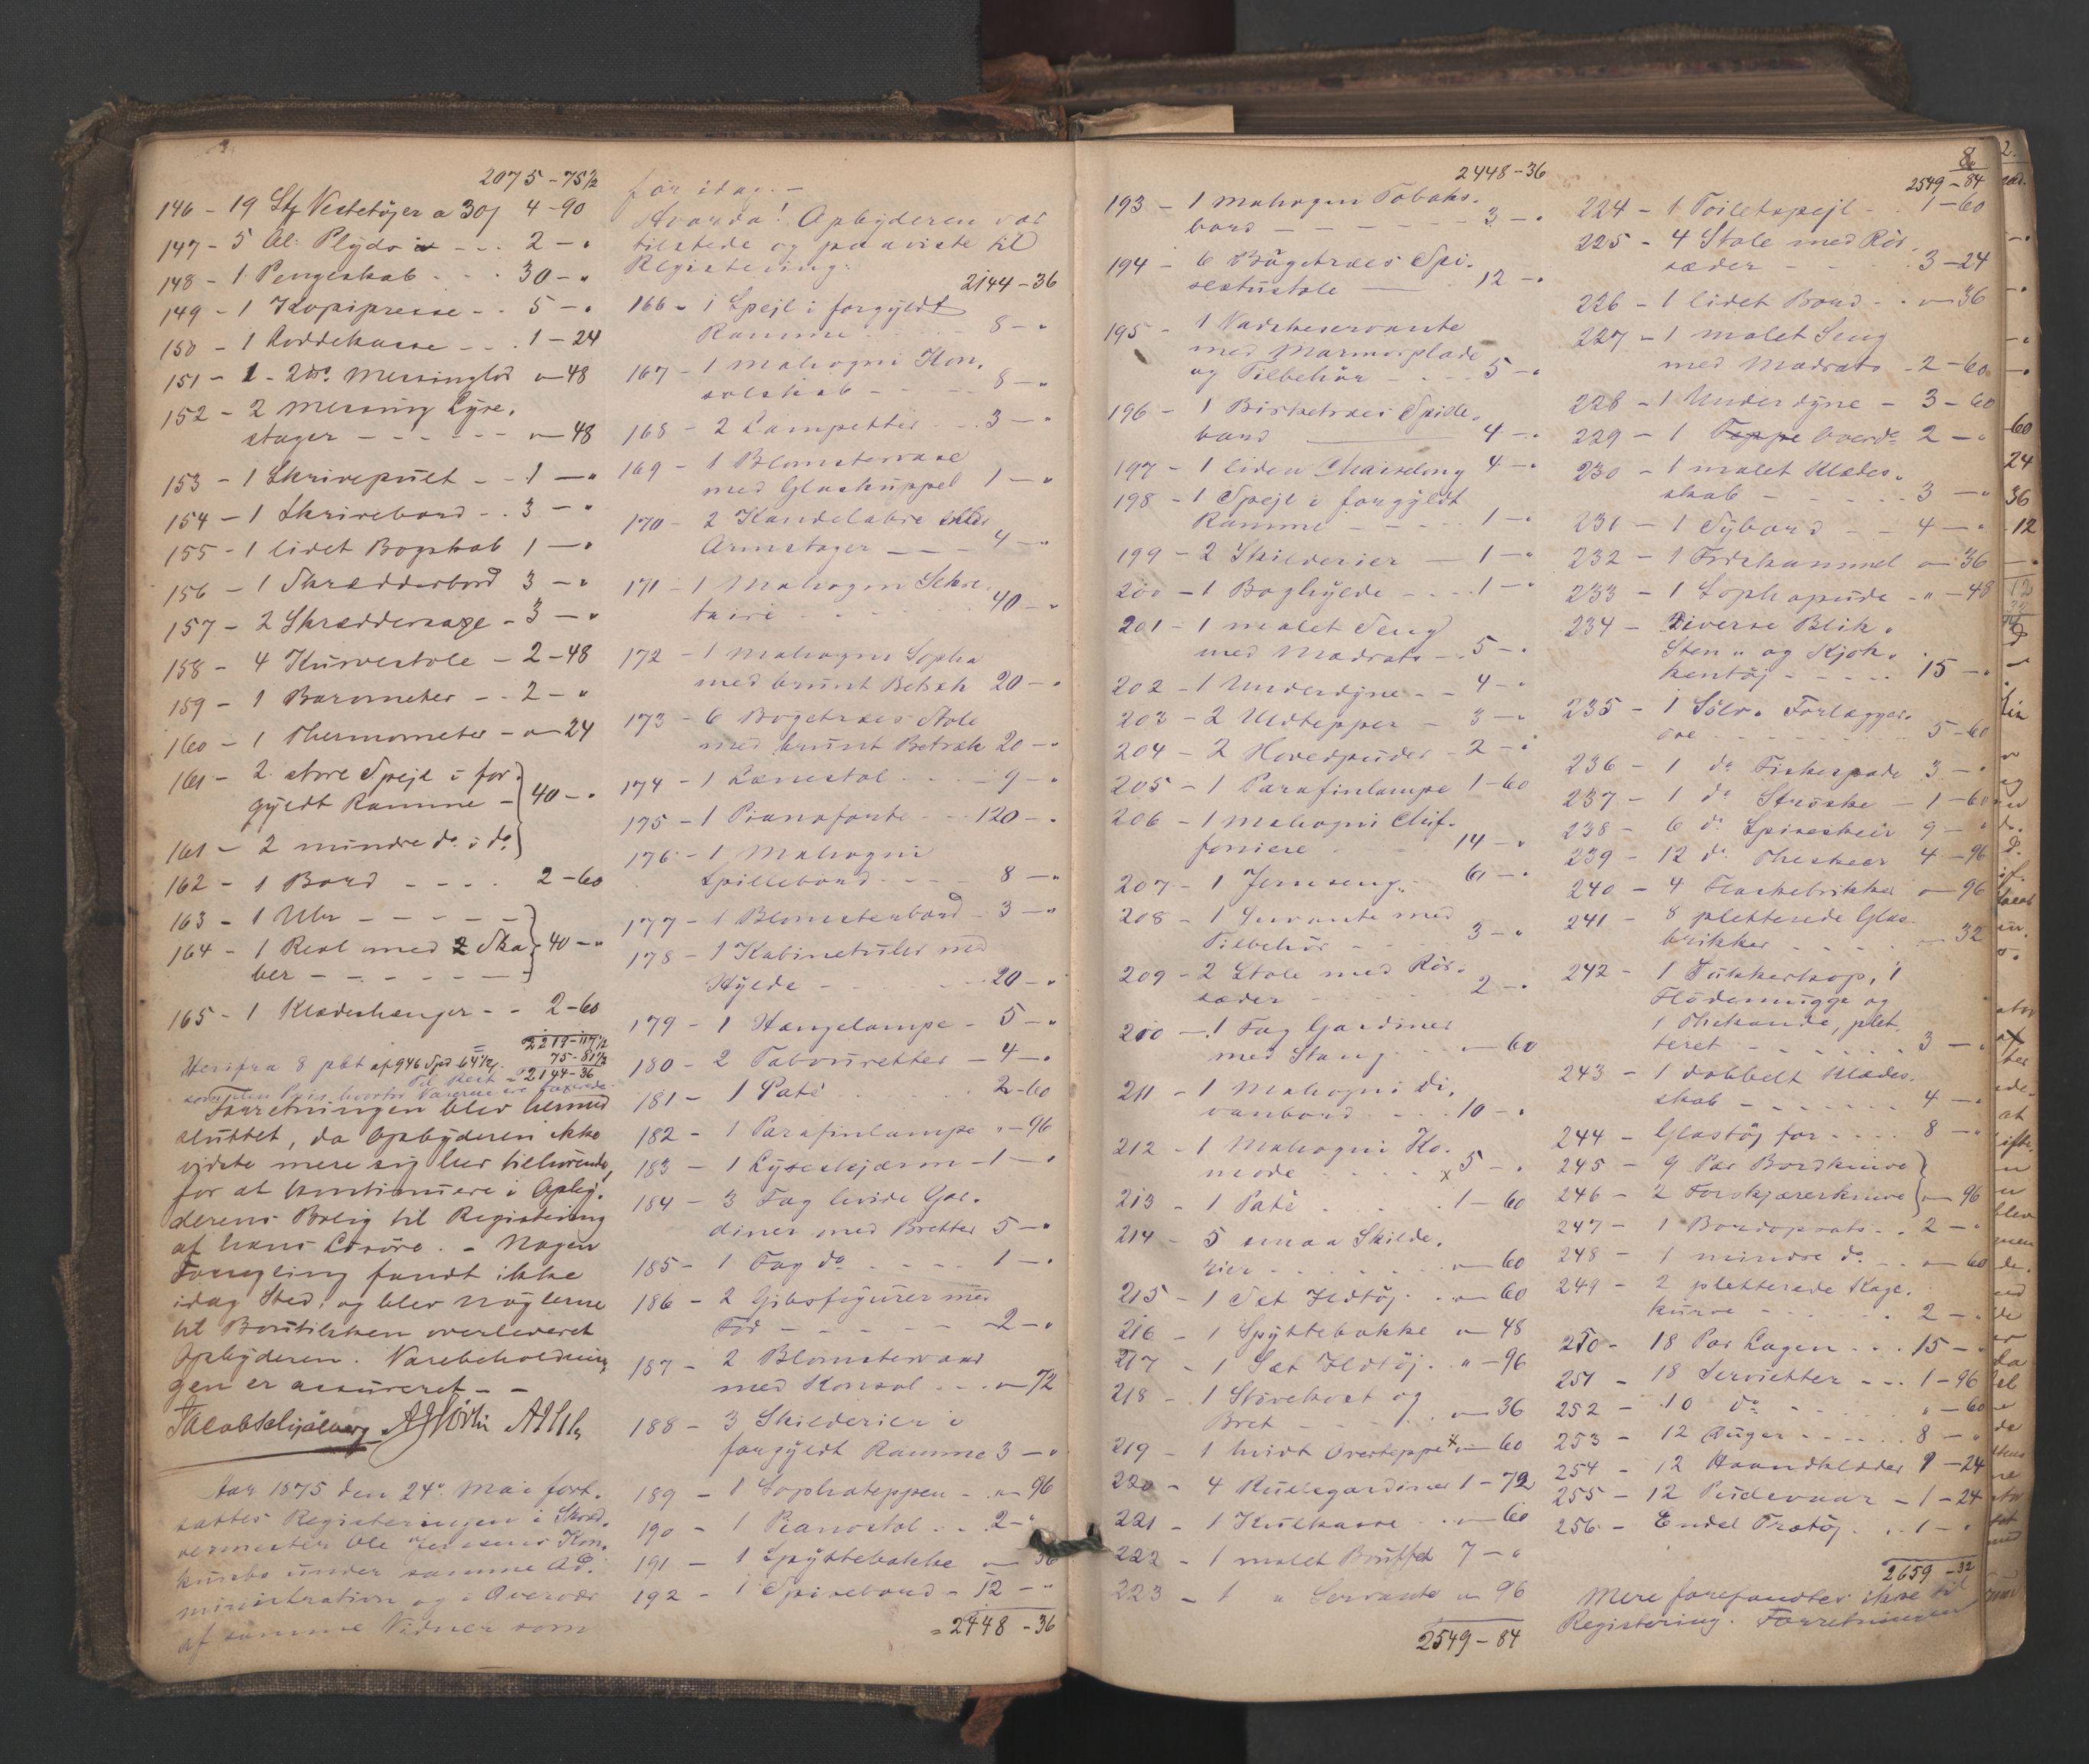 2075 - 75½
146 - 19 Stk Vestetöjer a 30ſ 4 - 90
147 - 5 Al: Plyds - - . . 2 - "
148 - 1 Pengeskab . - . 30 - "
149 - 1 Kopipresse - . 5 - "
150 - 1 Loddekasse - - . 1 - 24
151 - 1 - 2do. Messinglod " - 48
152 - 2 Messing Lyse-
stager - - - - - - " - 48
153 - 1 Skrivepult - - 1 - "
154 - 1 Skrivebord - . 3 - "
155 - 1 lidet Bogskab 1 - "
156 - 1 Skrædderbord 3 - "
157 - 2 Skræddersaxe - 3 - "
158 - 4 Kurvestole - 2 - 48
159 - 1 Barometer - . 2 - "
160 - 1 Thermometer - " - 24
161 - 2 store Speile i for-
gyldt Ramme - } 40 - "
161 - 2 mindre do. i do. }
162 - 1 Bord - - - . 2 - 60
163 - 1 Uhr - - - - - }
164 - 1 Reol med 2 Ska } 40 - "
ber - - - - - - }
165 - 1 Klædeshænger - - 2 - 60
2219 - 117½
Herifra 8 pCt af 946 Spd 64½ſ. 75 - 81½
Til Rest = 2144 - 36
som den Pris hvorfor Varerne ere
Forretningen blev hermed
sluttet, da Opbyderen ikke
vidste mere sig her tilhørende,
for at kontinuere i Opby-
derens Bolig til Registrering
af hans Lösöre. - Nogen
Forsegling fandt ikke
idag Sted, og blev Nöglerne
til Boutikken overleveret
Opbyderen. Varebeholdnin
gen er assureret - -
Aar 1875 den 24de Mai fort-
sattes Registreringen i Skræd-
dermester Ole Jensens Kon-
kursbo under samme Ad-
ministration og i Overvær
af samme Vidner som
før idag. -
Hvorda! Opbyderen var
tilstede og paaviste til
Registrering:
2144 - 36
166 - 1 Speil i forgyldt
Ramme . . . - - 8 - "
167 - 1 Mahogni Kon-
solskab - - - - 8 - "
168 - 2 Lampetter . - . 3 - "
169 - 1 Blomstervase
med Glaskuppel 1 - "
170 - 2 Kandelabre eller
Armstager - - - 4 - "
171 - 1 Mahogni Sekre-
taire . - . - . . 40 - "
172 - 1 Mahogni Sopha
med brunt Betræk 20 - "
173 - 6 Bøgetræes Stole
med brunt Betræk 20 - "
174 - 1 Lænestol . - . - 9 - "
175 - 1 Pianoforte - . . 120 - "
176 - 1 Mahogni
Spillebord - - - - 8 - "
177 - 1 Blomsterbord - 3 - "
178 - 1 Kabinetsuhr med
Hylde - - - . . 20 - "
179 - 1 Hængelampe - 5 - "
180 - 2 Tabouretter - 4 - "
181 - 1 Paté . . . . 2 - 60
182 - 1 Parafinlampe " - 96
183 - 1 Lyseskjærm - 1 - "
184 - 3 Fag hvide Gar-
diner med Bretter 5 - "
185 - 1 Fag do . . - - . 1 - "
186 - 2 Gibsfigurer med
Fod - - - - - - 2 - "
187 - 2 Blomstervaser
med Konsol . . . " - 72
188 - 3 Skilderier i
forgyldt Ramme 3 - "
189 - 1 Sophateppe - . " - 96
190 - 1 Pianostol . . . 2 - "
191 - 1 Spyttebakke " - 36
192 - 1 Spisebord - 12 - "
= 2448 - 36
8
2448 - 36
193 - 1 Mahogni Tobaks-
bord - - - - - - 3 - "
194 - 6 Bögetræes Spi-
sestustole - . 12 - "
195 - 1 Vadskeservante
med Marmorplade
og Tilbehör - - . . 5 - "
196 - 1 Birketræes Spille-
bord - 4 - "
197 - 1 liden Chaiselong 4 - "
198 - 1 Speil i forgyldt
Ramme - - - - . 1 - "
199 - 2 Skilderier - 1 - "
200 - 1 Boghylde - . . . 1 - "
201 - 1 malet Seng
med Madrats - . 5 - "
202 - 1 Underdyne - - 4 - "
203 - 2 Uldtepper - 3 - "
204 - 2 Hovedpuder - 2 - "
205 - 1 Parafinlampe 1 - 60
206 - 1 Mahogni Chif-
foniere . - . . . 14 - "
207 - 1 Jernseng . . 6 - "
208 - 1 Servante med
Tilbehör - - . . 3 - "
209 - 2 Stole med Rör-
sæder . . . . . 2 - "
210 - 1 Fag Gardiner
med Stang . . " - 60
211 - 1 Mahogni Di-
vanbord . . . . 10 - "
212 - 1 Mahogni Ko-
mode . . . . . x 5 - "
213 - 1 Paté . . . . . 1 - 60
214 - 5 smaa Skilde-
rier - - - . . . " - 60
215 - 1 Set Ildtöj . . " - 60
216 - 1 Spyttebakke " - 48
217 - 1 Sæt Ildtöj . . " - 96
218 - 1 Stövekost og
Bret - - - - . . " - 36
219 - 1 hvidt Overteppe x " - 60
220 - 4 Rullegardiner 1 - 72
221 - 1 Kulkasse . . " - 60
222 - 1 malet Bouffet 7 - "
223 - 1 " Servante " - 96
2549 - 84
2549 - 84
224 - 1 Toiletspejl - . . 1 - 60
225 - 4 Stole med Rör-
sæder - - . . 3 - 24
226 - 1 lidet Bord - . " - 36
227 - 1 malet Seng
med Madrats - 2 - 60
228 - 1 Underdyne - 3 - 60
229 - 1 Teppe Overdo 2 - "
230 - 1 malet Klædes-
skab - - - - - . 3 - "
231 - 1 Sybord - - 4 - "
232 - 1 Fodskammel " - 36
233 - 1 Sophapude - " - 48
234 - Diverse Blik-
Sten- og Kjök-
kentöj - - - . . 15 - "
235 - 1 Sölv- Forlægger-
öse - - - - - - 5 - 60
236 - 1 do Fiskespade 3 - "
237 - 1 do Ströske - 1 - 60
238 - 6 do Spiseskeer 9 - "
239 - 12 do Theskeer 4 - 96
240 - 4 Flaskebrikker " - 96
241 - 8 pletterede Glas-
brikker . . . . " - 32
242 - 1 Sukkerkop, 1
Flödemugge og
1 Thekande, plet-
teret - - - - - 3 - "
243 - 1 dobbelt Klædes-
skab - - - - - - 4 - "
244 - Glastöj for - . . . 8 - "
245 - 9 Par Bordknive }
246 - 2 Forskjærerknive } " - 96
247 - 1 Bordopsats - . . 2 - "
248 - 1 mindre do - . . " - 60
249 - 2 pletterede Kage-
kurve - - - . . . 2 - "
250 - 18 Par Lagen . . . 15 - "
251 - 18 Servietter - - . 1 - 96
252 - 10 do - - - - - " - 60
253 - 12 Duger . . . . . 8 - "
254 - 12 Haandklæder 1 - 24
255 - 12 Pudevaar - 1 - 24
256 - Endel Trætöj . . . 1 - "
2659 - 32
Mere forefandtes ikke til
Registrering. Forretningen